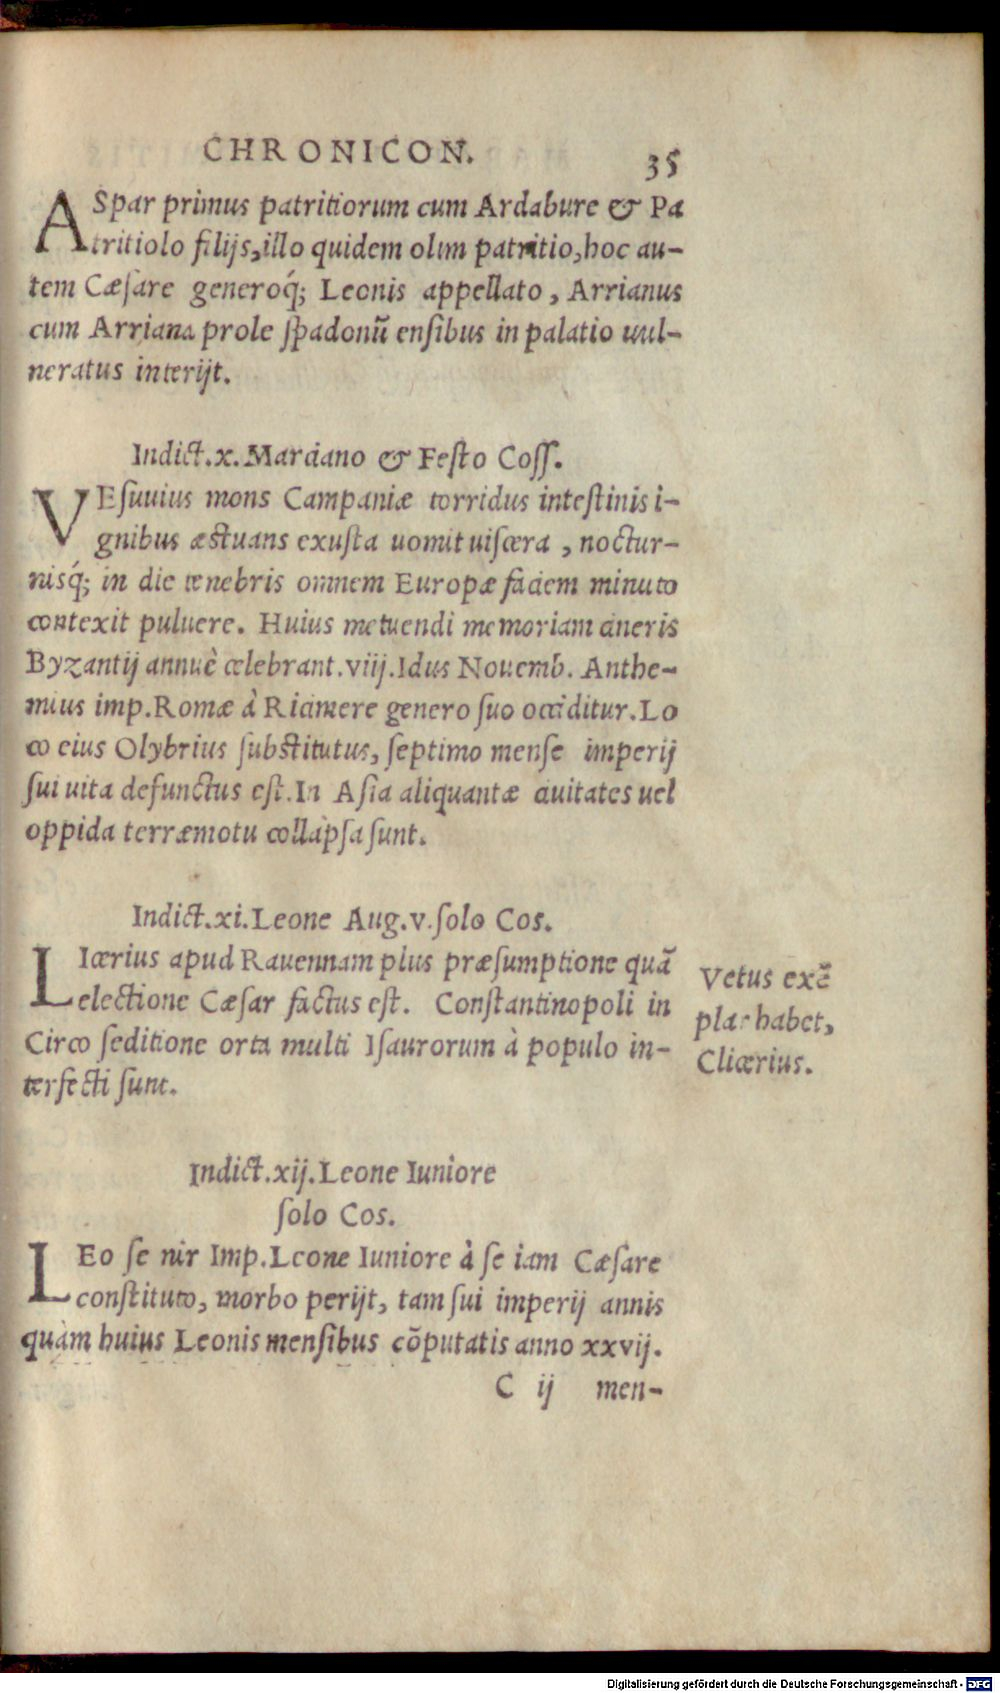 CHRONICON. 35
ASpar primus patritiorum cum Ardabure & Pa
tritiolo filijs, illo quidem olim patritio, hoc au-
tem Cæsare generoq́; Leonis appellato, Arrianus
cum Arriana prole spadonũ ensibus in palatio uul-
neratus interijt.
Indict.x. Marciano & Festo Coss.
VEsuuius mons Campaniæ torridus intestinis i-
gnibus æstuans exusta uomit uiscera, noctur-
nisq́; in die tenebris omnem Europæ faciem minuto
contexit puluere. Huius metuendi memoriam cineris
Byzantij annuè celebrant. viij. Idus Nouemb. Anthe-
mius imp. Romæ à Ricimere genero suo occiditur. Lo
co eius Olybrius substitutus, septimo mense imperij
sui uita defunctus est. In Asia aliquantæ ciuitates uel
oppida terræmotu collapsa sunt.
Indict.xi. Leone Aug. v. solo Cos.
LIcerius apud Rauennam plus præsumptione quã
electione Cæsar factus est. Constantinopoli in
Circo seditione orta multi Isaurorum à populo in-
terfecti sunt.
Vetus exẽ
plar habet,
Clicerius.
Indict.xij. Leone Iuniore
solo Cos.
LEo senir Imp. Leone Iuniore à se iam Cæsare
constituto, morbo perijt, tam sui imperij annis
quàm huius Leonis mensibus cõputatis anno xxvij.
C ij men-
Digitalisierung gefördert durch die Deutsche Forschungsgemeinschaft - DFG